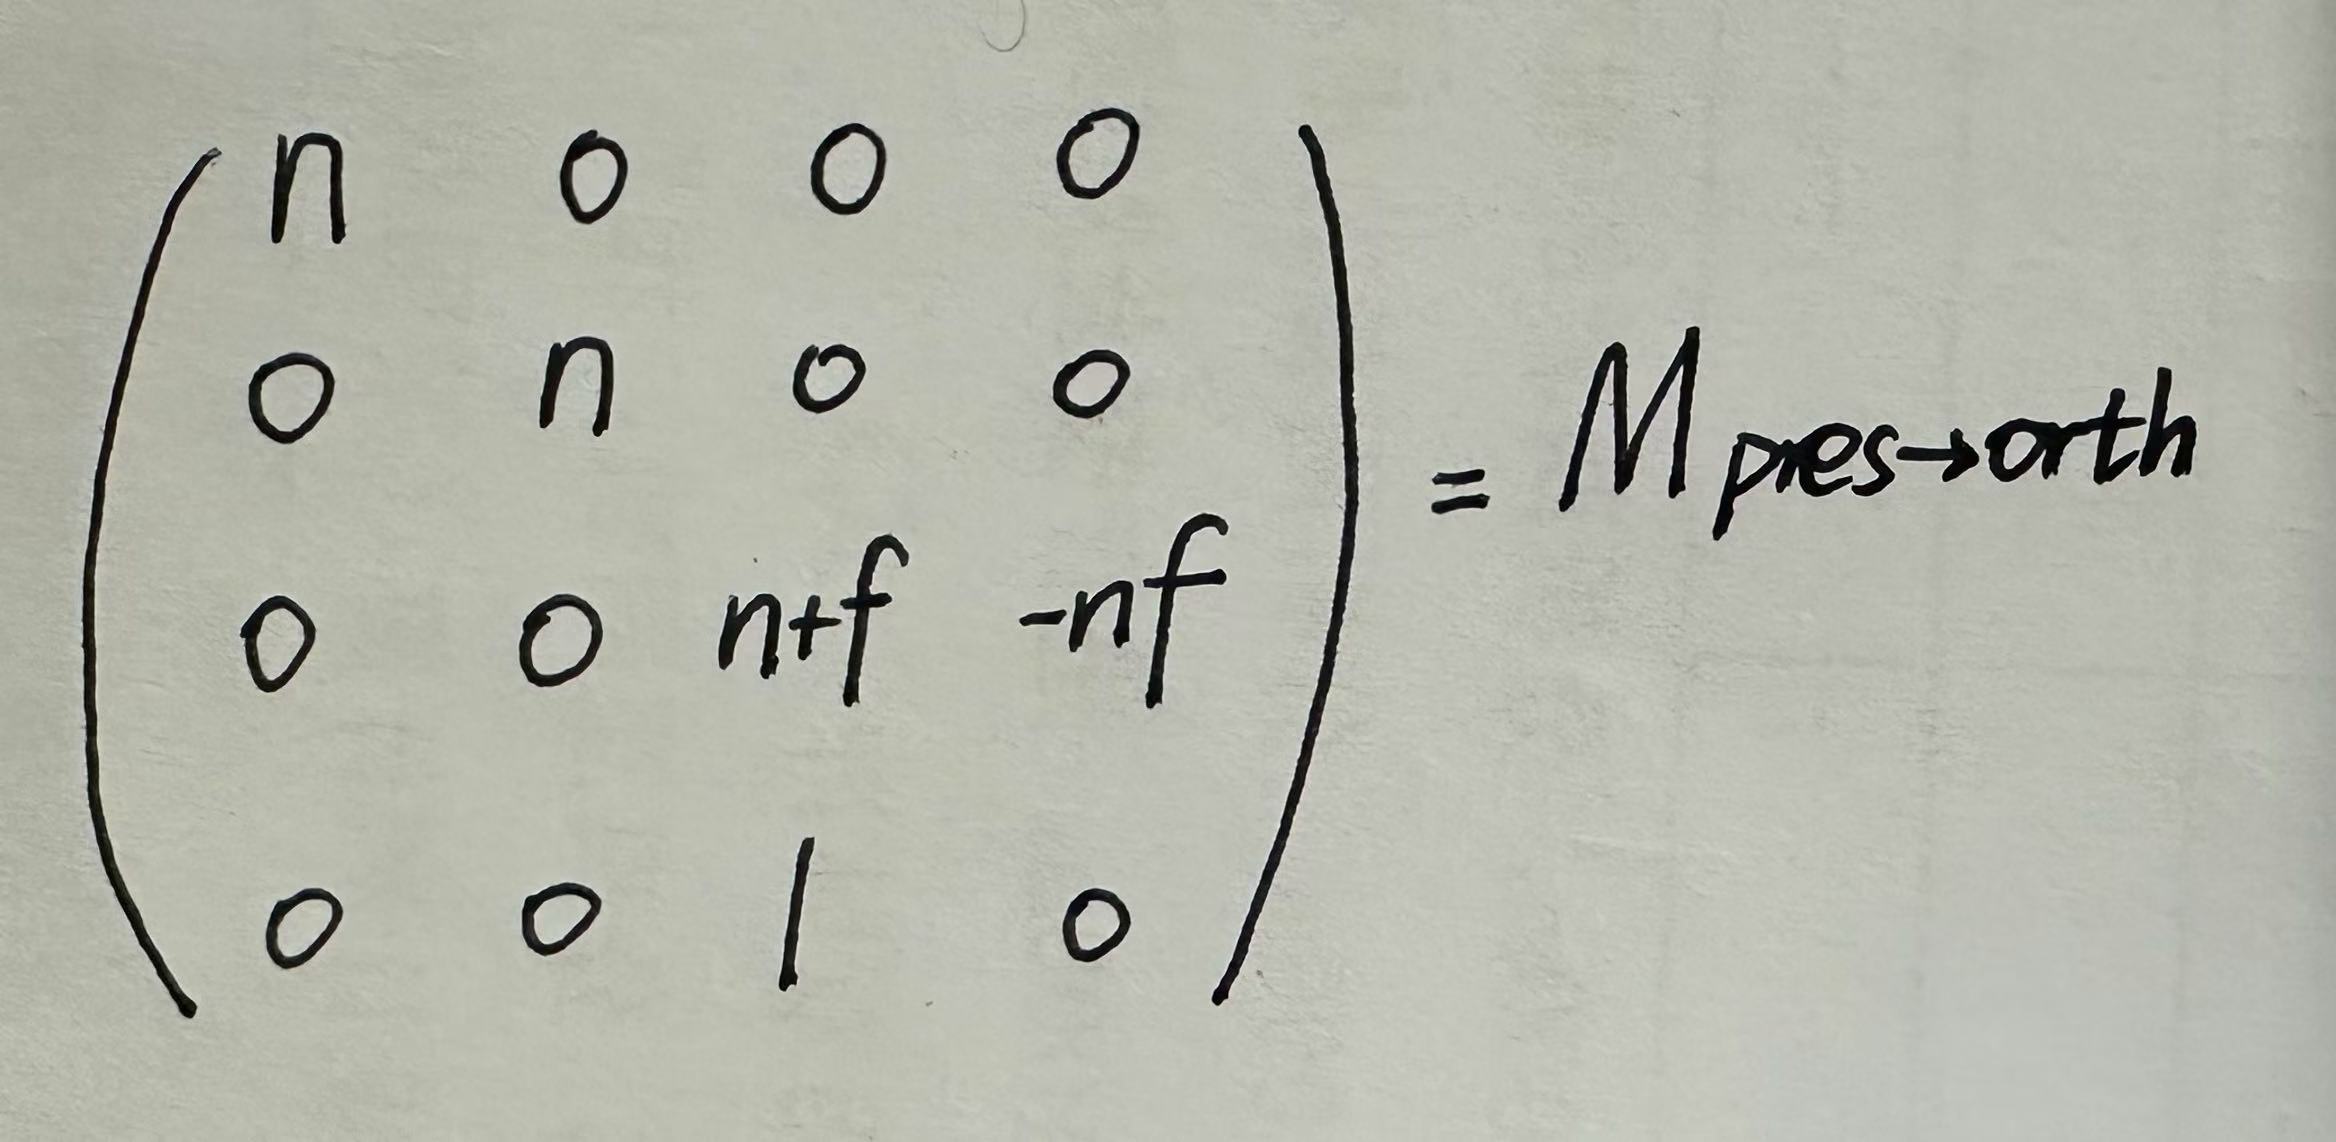 n 0 0 0
0 n 0 0
0 0 n+f -nf
0 0 1 0
= M pres→orth